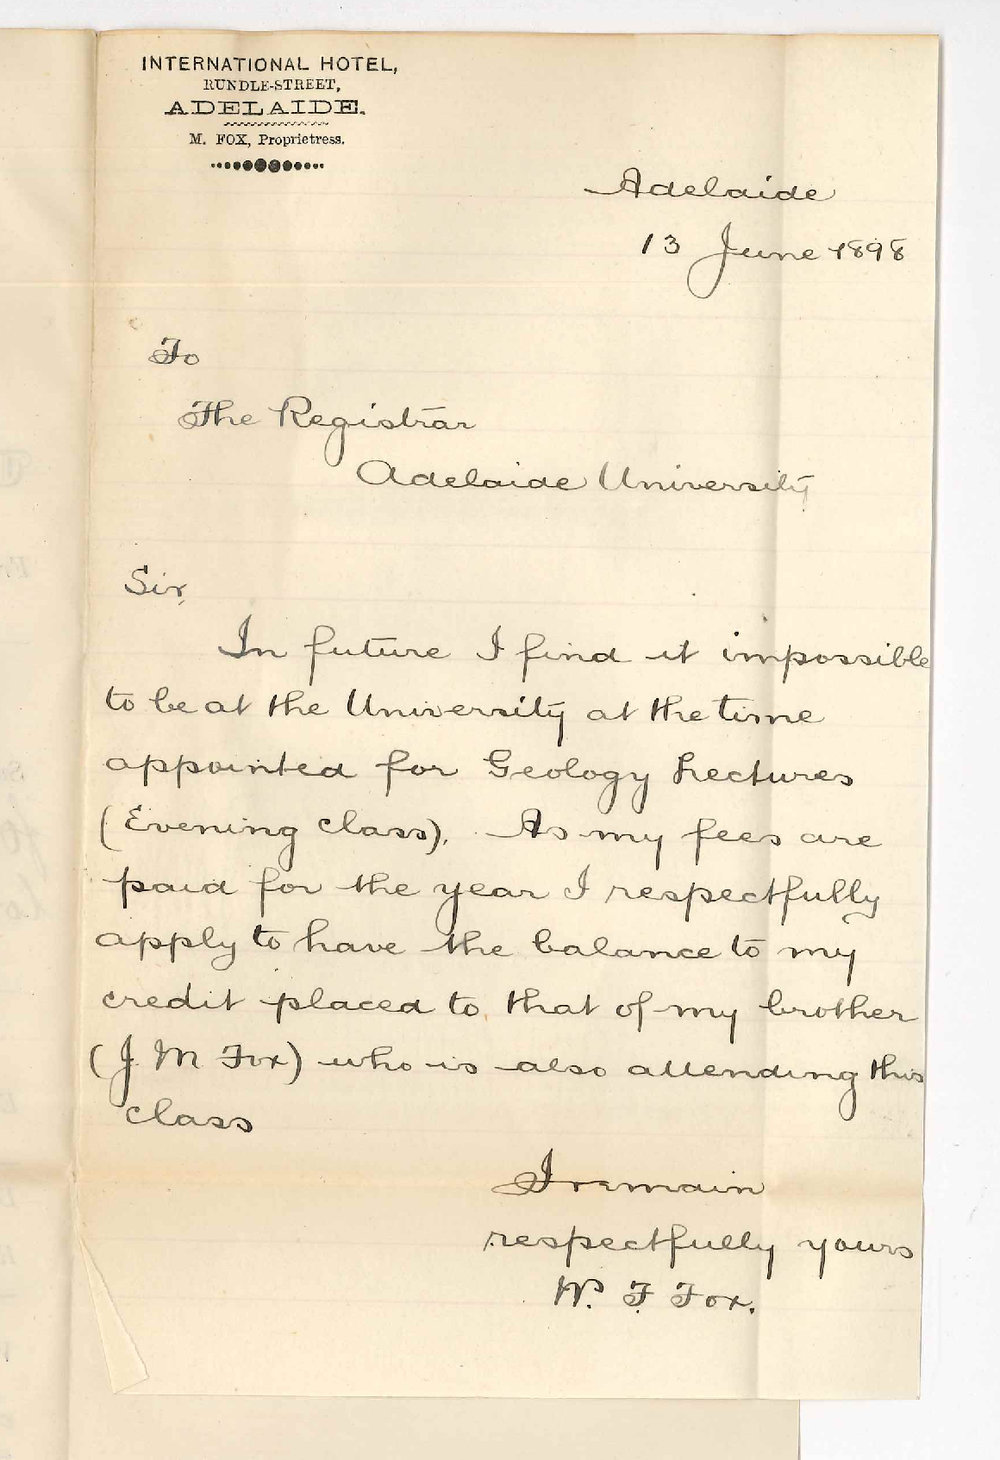 INTERNATIONAL HOTEL,
RUNDLE-STREET,
ADELAIDE.
M. FOX, Proprietress.
Adelaide
13 June 1898
To
The Registrar
Adelaide University
Sir,
In future I find it impossible
to be at the University at the time
appointed for Geology Lectures
(Evening class). As my fees are
paid for the year I respectfully
apply to have the balance to my
credit placed to that of my brother
(J. M Fox) who is also attending this
class
I remain
respectfully yours
W. F Fox.